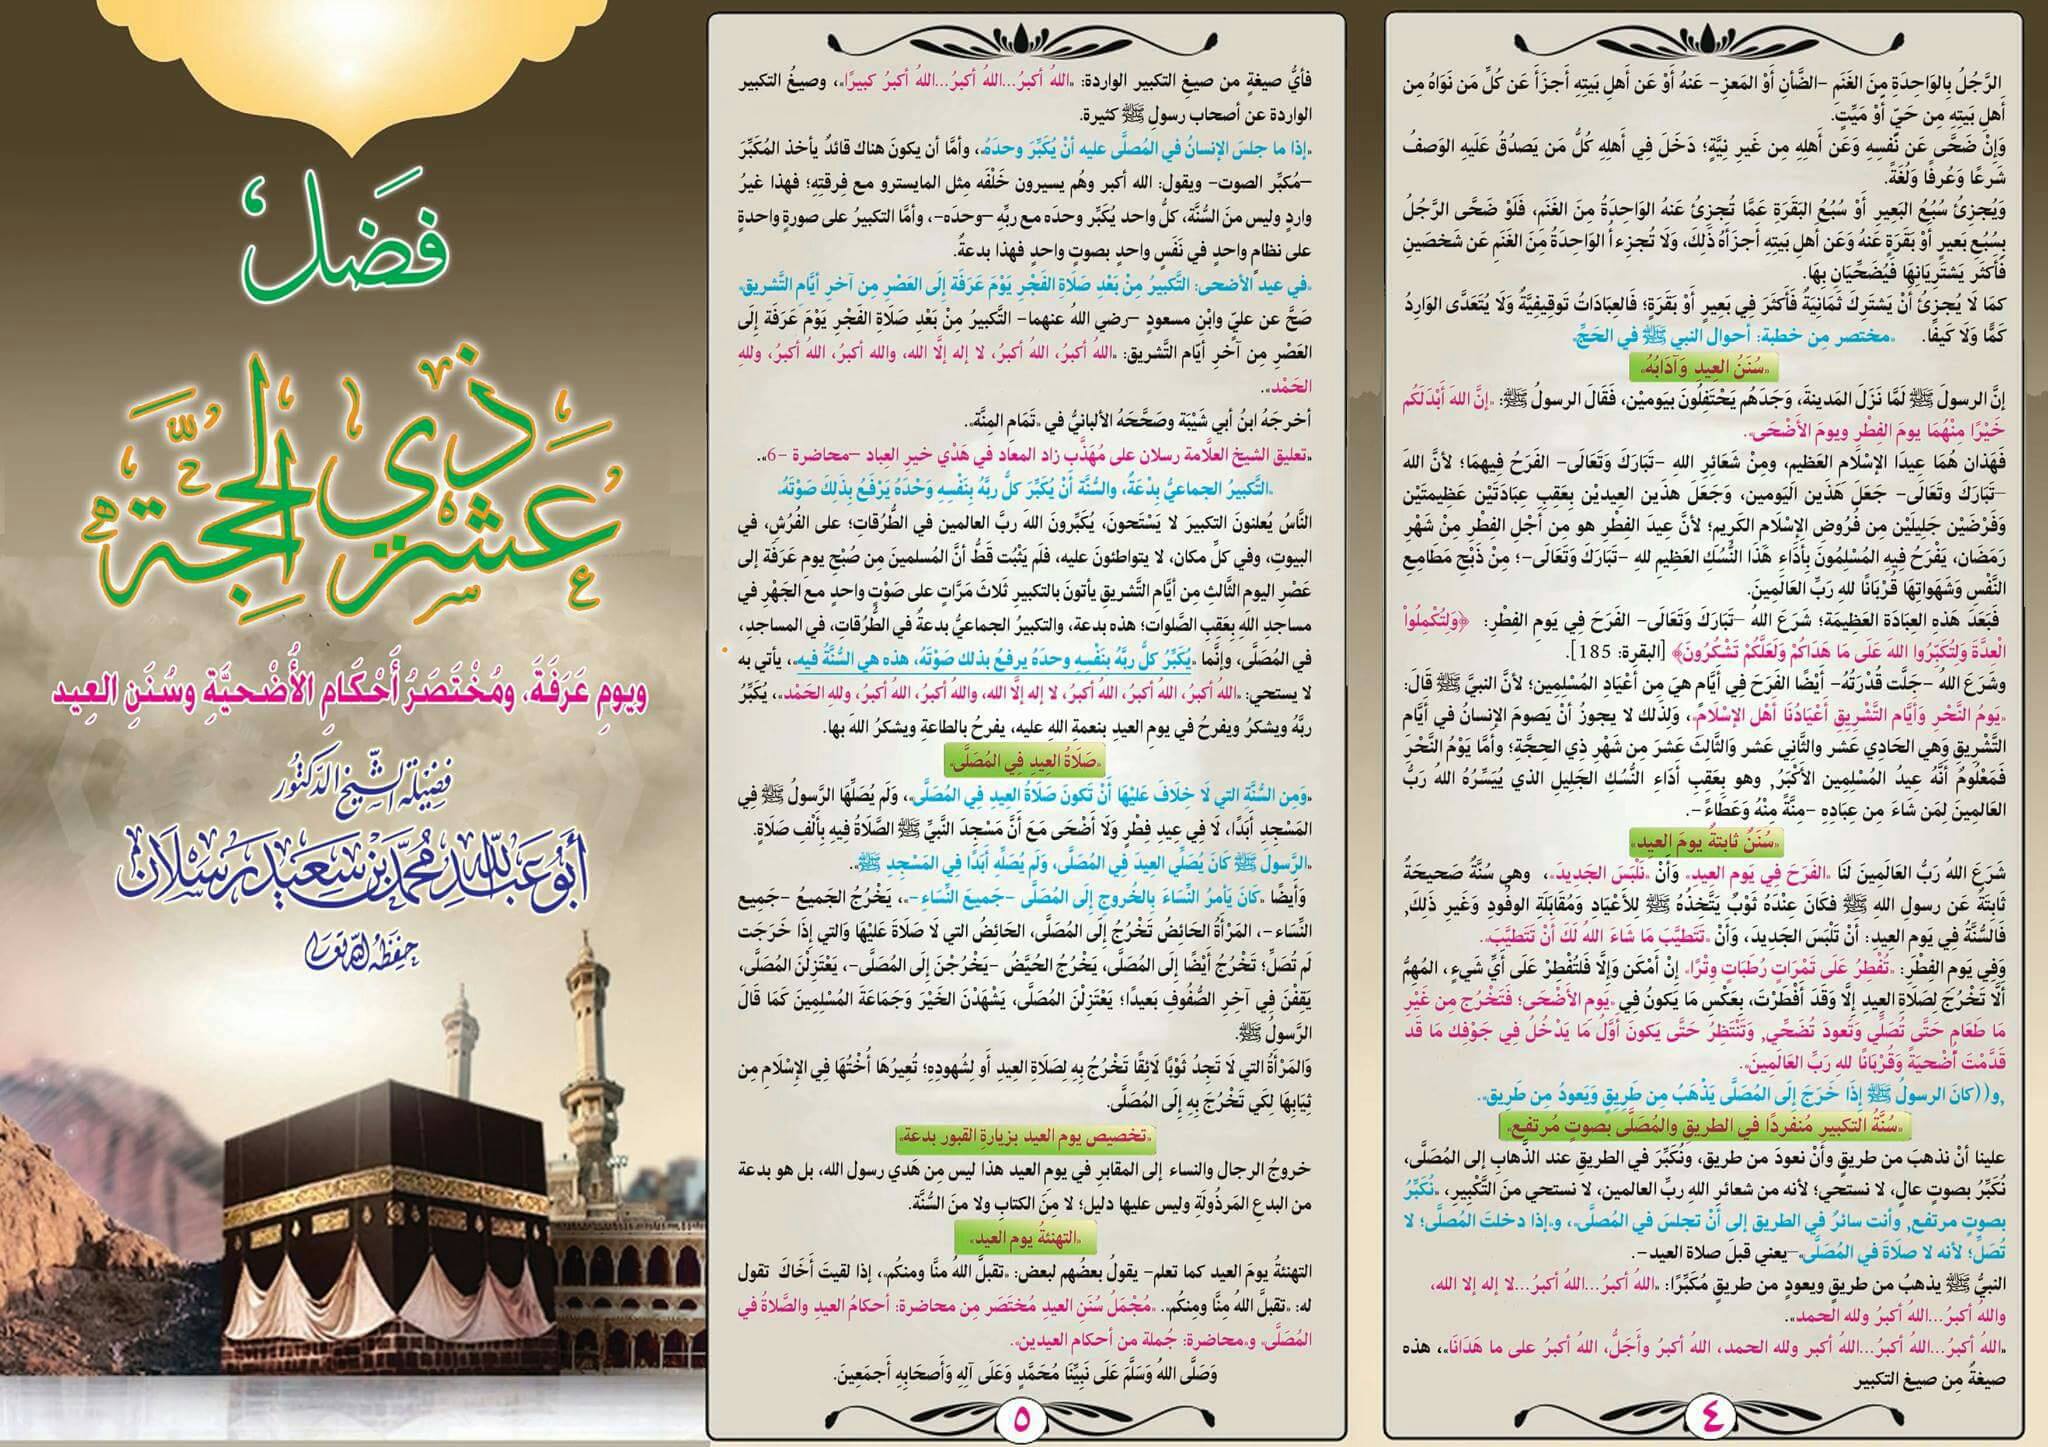 فضل
عشر ذي الحجة
ويومِ عَرَفَةَ، ومُخْتَصَرُ أَحْكَامِ الأُضْحيَّةِ وسُنَنِ العِيد
فضيلة الشيخ الدكتور
أبو عبد الله محمد بن سعيد رسلان
حفظه الله تعالى
الرَّجُلُ بِالوَاحِدَةِ مِنَ الغَنَمِ –الضَّأنِ أَوْ المَعزِ– عَنهُ أَوْ عَن أَهلِ بَيتِهِ أَجزَأَ عَن كُلِّ مَن نَوَاهُ مِن
أَهلِ بَيتِهِ مِن حَيٍّ أَوْ مَيِّتٍ.
وَإنْ ضَحَّى عَن نَّفسِهِ وَعَن أَهلِهِ مِن غَيرِ نِيَّةٍ؛ دَخَلَ فِي أَهلِهِ كُلُّ مَن يَصدُقُ عَلَيهِ الوَصفُ
شَرعًا وَعُرفًا وَلُغَةً.
وَيُجزِئُ سُبُعُ البَعِيرِ أَوْ سُبُعُ البَقَرَةِ عَمَّا تُجزِئُ عَنهُ الوَاحِدَةُ مِنَ الغَنَمِ، فَلَوْ ضَحَّى الرَّجُلُ
بِسُبُعِ بَعيرٍ أَوْ بَقَرَةٍ عَنهُ وَعَن أَهلِ بَيتِهِ أَجزَأَهُ ذَلِكَ، وَلَا تُجزِءُ الوَاحِدَةُ مِنَ الغَنَمِ عَن شَخصَينِ
فَأَكثَرَ يَشتَرِيَانِهَا فَيُضَحِّيَانِ بِهَا.
كمَا لَا يُجزِئُ أَنْ يَشتَرِكَ ثَمَانِيَةٌ فَأَكثَرَ فِي بَعِيرٍ أَوْ بَقَرَةٍ؛ فَالعِبَادَاتُ تَوقِيفِيَّةٌ وَلَا يُتَعَدَّى الوَارِدُ
كَمًّا وَلَا كَيفًا. «مختصر مِن خطبة: أحوال النبي ﷺ في الحَجِّ»
«سُنَنُ العِيدِ وَآدَابُهُ»
إنَّ الرسولَ ﷺ لَمَّا نَزَلَ المَدينةَ، وَجَدَهُم يَحْتَفِلُونَ بيَوميْنِ، فَقَالَ الرسولُ ﷺ: «إنَّ اللهَ أَبْدَلَكُم
خَيْرًا مِنْهُمَا يومَ الفِطْرِ ويومَ الأَضْحَى».
فَهَذان هُمَا عِيدَا الإسْلَامِ العَظيمِ، ومِنْ شَعَائِرِ اللهِ –تَبَارَكَ وَتَعَالَى– الفَرَحُ فِيهِمَا؛ لأنَّ اللهَ
–تَبَارَكَ وتَعَالَى– جَعَلَ هَذَينِ اليَومين، وَجَعَلَ هذَينِ العِيديْنِ بِعَقِبِ عِبَادَتَيْنِ عَظِيمتَيْنِ
وَفَرْضَيْنِ جَلِيلَيْنِ مِن فُرُوضِ الإسْلَامِ الكَرِيمِ؛ لأنَّ عِيدَ الفِطْرِ هو مِن أَجْلِ الفِطْرِ مِنْ شَهْرِ
رَمَضَان، يَفْرَحُ فِيهِ المُسْلِمُونَ بِأَدَاءِ هَذَا النُّسُكِ العَظِيمِ للهِ –تَبَارَكَ وَتَعَالَى–؛ مِنْ ذَبْحِ مَطَامِعِ
النَّفْسِ وَشَهَوَاتِهَا قُرْبَانًا للهِ رَبِّ العَالَمِينَ.
فَبَعْدَ هَذِهِ العِبَادَةِ العَظِيمَةِ؛ شَرَعَ اللهُ –تَبَارَكَ وَتَعَالَى– الفَرَحَ فِي يَومِ الفِطْرِ: ﴿وَلِتُكْمِلُواْ
الْعِدَّةَ وَلِتُكَبِّرُوا اللهَ عَلَى مَا هَدَاكُمْ وَلَعَلَّكُمْ تَشْكُرُونَ﴾ [البقرة: 185].
وشَرَعَ اللهُ –جَلَّت قُدْرَتُهُ– أَيْضًا الفَرَحَ في أَيَّامٍ هيَ مِن أَعْيَادِ المُسْلِمِين؛ لأنَّ النبيَّ ﷺ قَالَ:
«يَومُ النَّحْرِ وَأَيَّام التَّشْرِيقِ أَعْيَادُنَا أَهْل الإسْلَام»، وَلذلكَ لا يجوزُ أنْ يَصومَ الإنسانُ في أيَّامِ
التَّشْرِيقِ وَهيَ الحَادي عَشر والثَّاني عَشر والثَّالثَ عَشرَ مِن شَهْرِ ذي الحِجَّةِ؛ وأمَّا يَوْمُ النَّحْرِ
فَمَعْلُومٌ أنَّهُ عِيدُ المُسْلِمِين الأَكْبَرُ, وهو بِعَقِبِ أَدَاءِ النُّسُكِ الجَلِيلِ الذي يُيَسِّرُهُ اللهُ رَبُّ
العَالَمِينَ لِمَن شَاءَ مِن عِبَادِهِ –مِنَّةً مِنْهُ وَعَطَاءً–.
«سُنَنٌ ثابتةٌ يومَ العِيدِ»
شَرَعَ اللهُ رَبُّ العَالَمِينَ لَنَا «الفَرَحَ فِي يَومِ العِيدِ» وَأَنْ «نَلْبَسَ الجَدِيدَ»، وهي سُنَّةٌ صَحِيحَةٌ
ثَابِتَةٌ عَن رسولِ اللهِ ﷺ فَكَانَ عِنْدَهُ ثَوْبٌ يَتَّخِذُهُ ﷺ لِلأَعْيَادِ وَمُقَابَلَةِ الوفُودِ وَغَيرِ ذَلِكَ,
فَالسُّنَّةُ فِي يَومِ العِيدِ: أَنْ تَلْبَسَ الجَدِيدَ، وَأَنْ «تَتَطَيَّبَ مَا شَاءَ اللهُ لَكَ أَنْ تَتَطَيَّبَ».
وَفِي يَومِ الفِطْرِ: «تُفْطِرُ عَلَى تَمْرَاتٍ رُطَبَاتٍ وِتْرًا» إِنْ أَمْكَن وَإِلَّا فَلتُفْطِرْ عَلَى أَيِّ شَيءٍ، المُهِمُّ
أَلَّا تَخْرُجَ لِصَلَاةِ العِيدِ إِلَّا وَقَد أَفْطَرْتَ، بِعَكْسِ مَا يَكُونُ فِي «يَوم الأَضْحَى؛ فَتَخْرُج مِن غَيْرِ
مَا طَعَامٍ حَتَّى تُصَلِّي وَتَعودَ تُضَحِّي, وَتَنْتَظِرُ حَتَّى يَكونَ أَوَّلُ مَا يَدْخُلُ فِي جَوْفِك مَا قَد
قَدَّمْتَ أُضْحِيَةً وَقُرْبَانًا للهِ رَبِّ العَالَمِينَ».
,و((كانَ الرسولُ ﷺ إذَا خَرَجَ إلَى المُصَلَّى يَذْهَبُ مِن طَرِيقٍ وَيَعودُ مِن طَرِيقٍ».
«سُنَّةُ التكبيرِ مُنفردًا في الطريقِ والمُصَلَّى بصوتٍ مُرتفعٍ»
علينا أنْ نذهبَ من طريقٍ وأنْ نعودَ من طريق، ونُكَبِّرَ في الطريقِ عند الذَّهابِ إلى المُصَلَّى،
نُكَبِّرُ بصوتٍ عالٍ، لا نستحي؛ لأنه من شعائرِ اللهِ ربِّ العالمين، لا نستحي منَ التَّكْبِيرِ، «نُكَبِّرُ
بصوتٍ مرتفع, وأنت سائرٌ في الطريق إلى أنْ تجلسَ في المُصلَّى»، و«إذا دخلتَ المُصلَّى؛ لا
تُصَلِّ؛ لأنه لا صلَاةَ في المُصَلَّى»–يعني قبلَ صلاة العيد–.
النبيُّ ﷺ يذهبُ من طريقٍ ويعودِ من طريقٍ مُكَبِّرًا: «اللهُ أكبرُ...اللهُ أكبرُ...لا إله إلا الله،
واللهُ أكبرُ...اللهُ أكبرُ ولله الحمد».
«اللهُ أكبرُ...اللهُ أكبرُ...اللهُ أكبر ولله الحمد، اللهُ أكبرُ وأَجَلُّ، اللهُ أكبرُ على ما هَدَانَا»، هذه
صيغةٌ مِن صيغِ التكبير
٤
فأيُّ صيغةٍ من صيغِ التكبير الواردة: «اللهُ أكبرُ...اللهُ أكبرُ...اللهُ أكبرُ كبيرًا»، وصيغُ التكبير
الواردة عن أصحاب رسولِ ﷺ كثيرة.
«إذا ما جلسَ الإنسانُ في المُصلَّى عليه أنْ يُكَبِّرَ وحدَهُ»، وأمَّا أن يكونَ هناك قائدٌ يأخذ المُكَبِّرَ
–مُكبِّر الصوت– ويقول: الله أكبر وهُم يسيرون خَلْفَه مِثل المايسترو مع فِرقتِهِ؛ فهذا غيرُ
واردٍ وليس منَ السُّنَّة، كلُّ واحد يُكَبِّر وحدَه مع ربِّهِ –وحدَه–، وأمَّا التكبيرُ على صورةٍ واحدةٍ
على نظامٍ واحدٍ في نَفَسٍ واحدٍ بصوتٍ واحدٍ فهذا بدعةٌ.
«في عيد الأضحى: التَّكبيرُ مِنْ بَعْدِ صَلَاةِ الفَجْرِ يَوْمَ عَرَفَةَ إلى العَصْرِ مِن آخرِ أيَّامِ التَّشريق»
صَحَّ عن عليٍّ وابْنِ مسعودٍ –رضي اللهُ عنهما– التَّكبيرُ مِنْ بَعْدِ صَلَاةِ الفَجْرِ يَوْمَ عَرَفَةَ إلَى
العَصْرِ مِن آخرِ أيّامِ التَّشريق: «اللهُ أكبرُ، اللهُ أكبرُ، لا إله إلَّا الله، والله أكبرُ، اللهُ أكبرُ، وللهِ
الحَمْد».
أخرجَهُ ابنُ أبي شَيْبَة وصَحَّحَهُ الألبانيُّ في «تَمَام المِنَّة».
«تعليق الشيخ العلَّامة رسلان على مُهَذَّب زاد المعَاد في هَدْي خيرِ العِباد –محاضرة –6».
«التَّكبيرُ الجماعيُّ بِدْعَةٌ، والسُّنَّة أنْ يُكَبِّرَ كلُّ ربَّهُ بِنَفْسِهِ وَحْدَهُ يَرْفَعُ بِذَلِكَ صَوْتَهُ»
النَّاسُ يُعلنونَ التكبيرَ لا يَسْتَحونَ، يُكَبِّرُونَ اللهَ ربَّ العالمين في الطُّرقاتِ؛ على الفُرُشِ، في
البيوتِ، وفي كلِّ مكان، لا يتواطئونَ عليه، فلَم يَثْبُت قطُّ أنَّ المُسلمينَ مِن صُبْحِ يومِ عَرَفَةَ إلى
عَصْرِ اليومِ الثَّالثِ مِن أيَّامِ التَّشريقِ يأتونَ بالتكبيرِ ثَلاثَ مَرَّاتٍ على صَوْتٍ واحدٍ معَ الجَهْرِ في
مساجدِ اللهِ بِعَقِبِ الصَّلواتِ؛ هذه بدعة، والتكبيرُ الجماعيُّ بدعةٌ في الطُّرقاتِ، في المساجدِ،
في المُصَلَّى، وإنَّما «يُكَبِّرُ كلُّ ربَّهُ بِنَفْسِهِ وحدَهُ يرفعُ بذلك صَوْتَهُ، هذه هي السُّنَّةُ فيه»، يأتي به
لا يستحي: «اللهُ أكبرُ، اللهُ أكبرُ، اللهُ أكبرُ، لا إله إلَّا الله، واللهُ أكبرُ، اللهُ أكبرُ، وللهِ الحَمْد»، يُكَبِّرُ
ربَّهُ ويشكرُ ويفرحُ في يومِ العيدِ بنعمةِ اللهِ عليه، يفرحُ بالطاعةِ ويشكرُ اللهَ بها.
«صَلَاةُ العيدِ في المُصَلَّى»
«وَمِن السُّنَّةِ التي لا خِلَافَ عَلَيْهَا أَنْ تَكونَ صَلَاةُ العِيدِ فِي المُصَلَّى»، وَلَم يُصَلِّهَا الرَّسولُ ﷺ فِي
المَسْجِدِ أَبَدًا، لَا فِي عِيدِ فِطْرٍ وَلَا أَضْحَى مَعَ أَنَّ مَسْجِدَ النَّبيِّ ﷺ الصَّلَاةُ فِيهِ بِأَلْفِ صَلَاةٍ.
«الرَّسولُ ﷺ كَانَ يُصَلِّي العِيدَ فِي المُصَلَّى، وَلَم يُصَلِّهِ أَبَدًا فِي المَسْجِدِ ﷺ».
وَأَيضًا «كَانَ يَأمرُ النِّسَاءَ بِالخُروجِ إلَى المُصَلَّى –جَمِيع النِّسَاءِ–»، يَخْرُجُ الجَمِيعُ –جَمِيع
النِّسَاء–، المَرْأَةُ الحَائِضُ تَخْرُجُ إلَى المُصَلَّى، الحَائِضُ التي لا صَلَاةَ عَلَيْهَا وَالتي إِذَا خَرَجَت
لَم تُصَلِّ؛ تَخْرُجُ أَيْضًا إلَى المُصَلَّى، يَخْرُجُ الحُيَّضُ –يَخْرُجْنَ إلَى المُصَلَّى–، يَعْتَزِلْنَ المُصَلَّى،
يَقِفْنَ فِي آخِرِ الصُّفُوفِ بَعِيدًا؛ يَعْتَزِلْنَ المُصَلَّى، يَشْهَدْنَ الخَيْرَ وَجَمَاعَةَ المُسْلِمِينَ كَمَا قَالَ
الرَّسولُ ﷺ.
وَالمَرْأَةُ التي لَا تَجِدُ ثَوْبًا لَائِقًا تَخْرُجُ بِهِ لِصَلَاةِ العِيدِ أَو لِشُهودِهِ؛ تُعِيرُهَا أُخْتُهَا فِي الإِسْلَامِ مِن
ثِيَابِهَا لِكَي تَخْرُجَ بِهِ إلَى المُصَلَّى.
«تخصيص يوم العيد بزيارةِ القبور بدعة»
خروجُ الرجال والنساء إلى المقابرِ في يومِ العيد هذا ليس مِن هَدي رسول الله، بل هو بدعة
من البدعِ المَرذُولَةِ وليس عليها دليل؛ لا مِنَ الكتابِ ولا منَ السُّنَّة.
«التهنئةُ يوم العيد»
التهنئةُ يومَ العيد كما تعلم– يقولُ بعضُهم لبعض: «تقبلَ اللهُ منَّا ومنكُم»، إذا لقيتَ أَخَاكَ تقول
له: «تقبلَ اللهُ مِنَّا ومِنكُم». «مُجْمَلُ سُنَنِ العيدِ مُختَصَر مِن محاضرة: أحكامُ العيدِ والصَّلاةُ في
المُصَلَّى» و«محاضرة: جُملة من أحكام العيدين».
وَصَلَّى اللهُ وَسَلَّمَ عَلَى نَبِيِّنَا مُحَمَّدٍ وَعَلَى آلِهِ وَأَصحَابِهِ أَجمَعِينَ.
٥